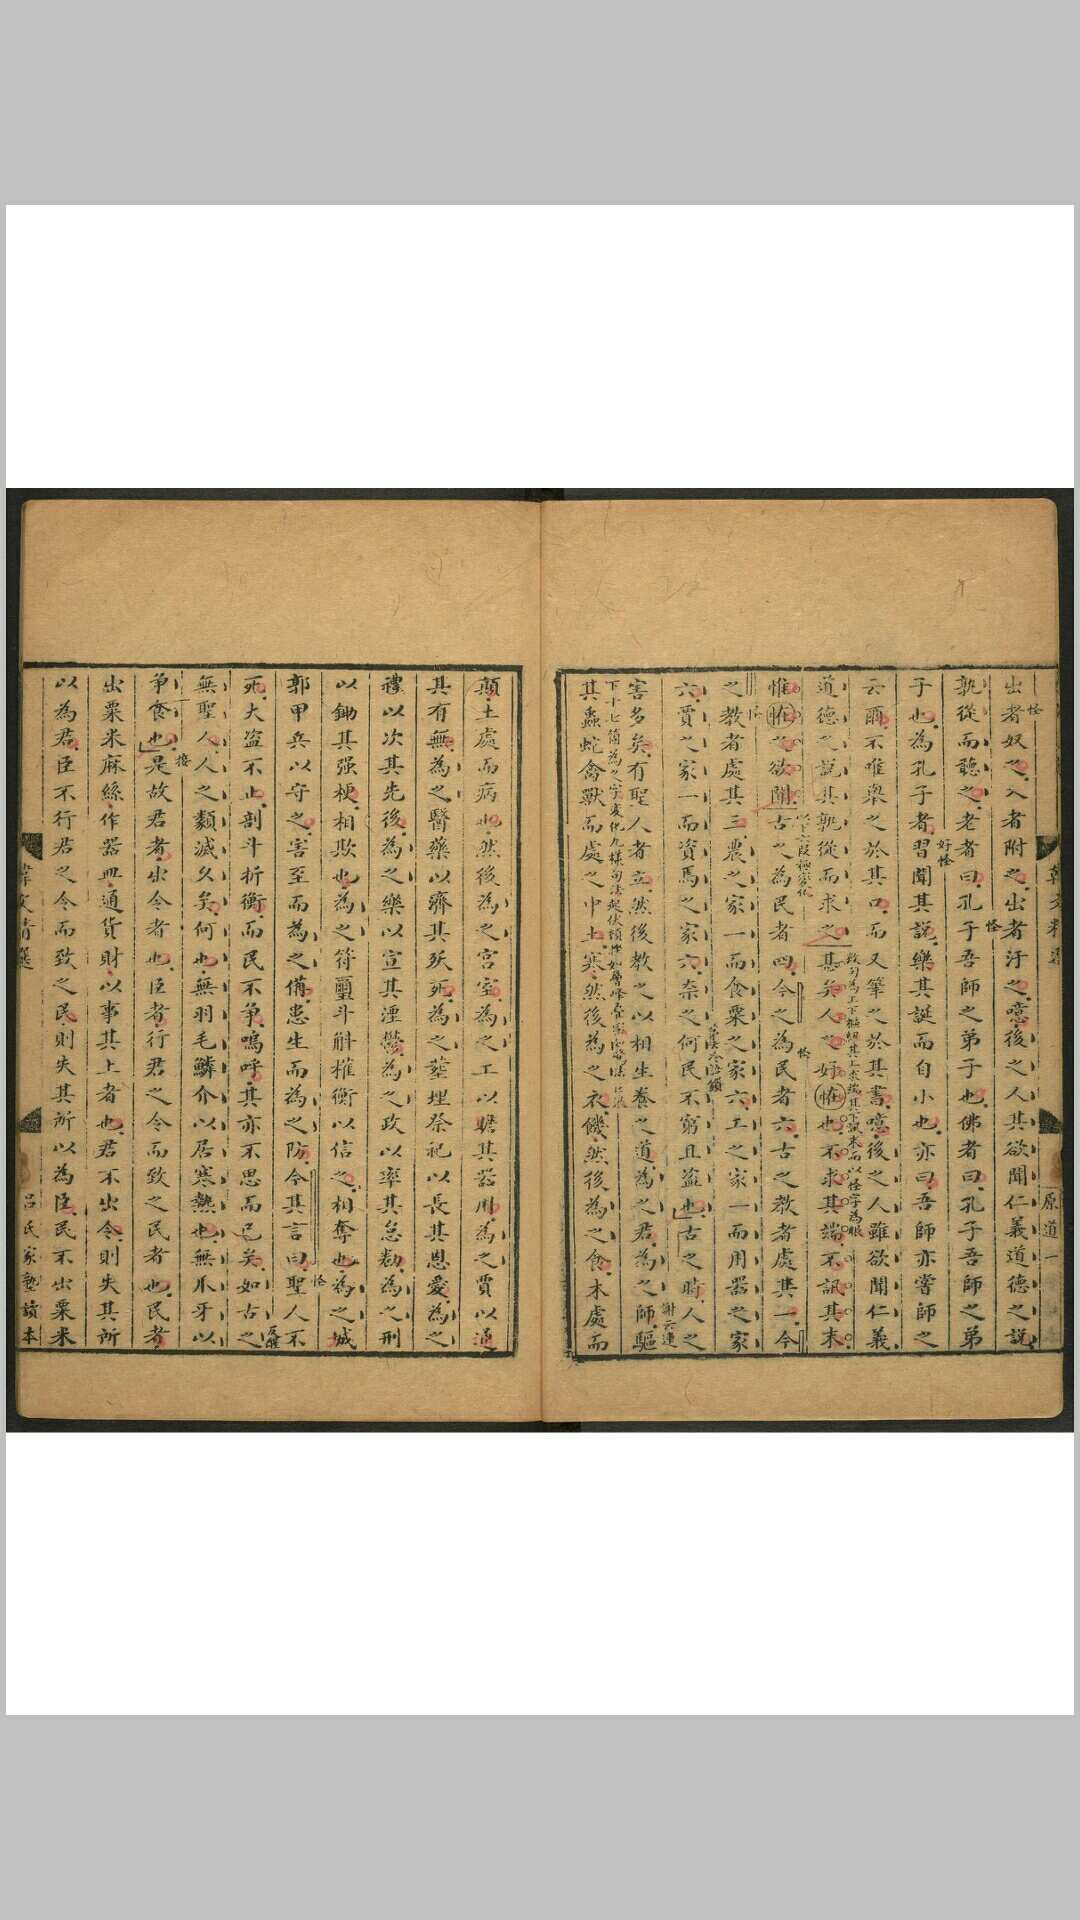 出者奴之入者附之出者汙之噫後之人其欲聞仁義道德之說
孰從而聽之老者曰孔子吾師之弟子也佛者曰孔子吾師之弟
子也為孔子者習聞其說樂其誕而自小也亦曰吾師亦嘗師之
云爾不唯舉之於其口而又筆之於其書噫後之人雖欲聞仁義
道德之說其孰從而求之甚矣人之好恠也不求其端不訊其末
惟恠之欲聞古之為民者四今之為民者六古之教者處其一今
之教者處其三農之家一而食粟之家六工之家一而用器之家
六賈之家一而資焉之家六奈之何民不窮且盜也古之時人之
害多矣有聖人者立然後教之以相生養之道為之君為之師驅
其蟲蛇禽獸而處之中土寒然後為之衣饑然後為之食木處而
怪
怪
好怪
怪
怪
原道一
顛土處而病也然後為之宮室為之工以贍其器用為之賈以通
其有無為之醫藥以濟其殀死為之塟埋祭祀以長其恩愛為之
禮以次其先後為之樂以宣其湮鬱為之政以率其怠勌為之刑
以鋤其强梗相欺也為之符璽斗斛權衡以信之相奪也為之城
郭甲兵以守之害至而為之備患生而為之防今其言曰聖人不
死大盜不止剖斗折衡而民不爭嗚呼其亦不思而已矣如古之
無聖人人之類滅久矣何也無羽毛鱗介以居寒熱也無爪牙以
争食也是故君者出令者也臣者行君之令而致之民者也民者
出粟米麻絲作器皿通貨財以事其上者也君不出令則失其所
以為君臣不行君之令而致之民則失其所以為臣民不出粟米
怪
接
呂氏家塾讀本